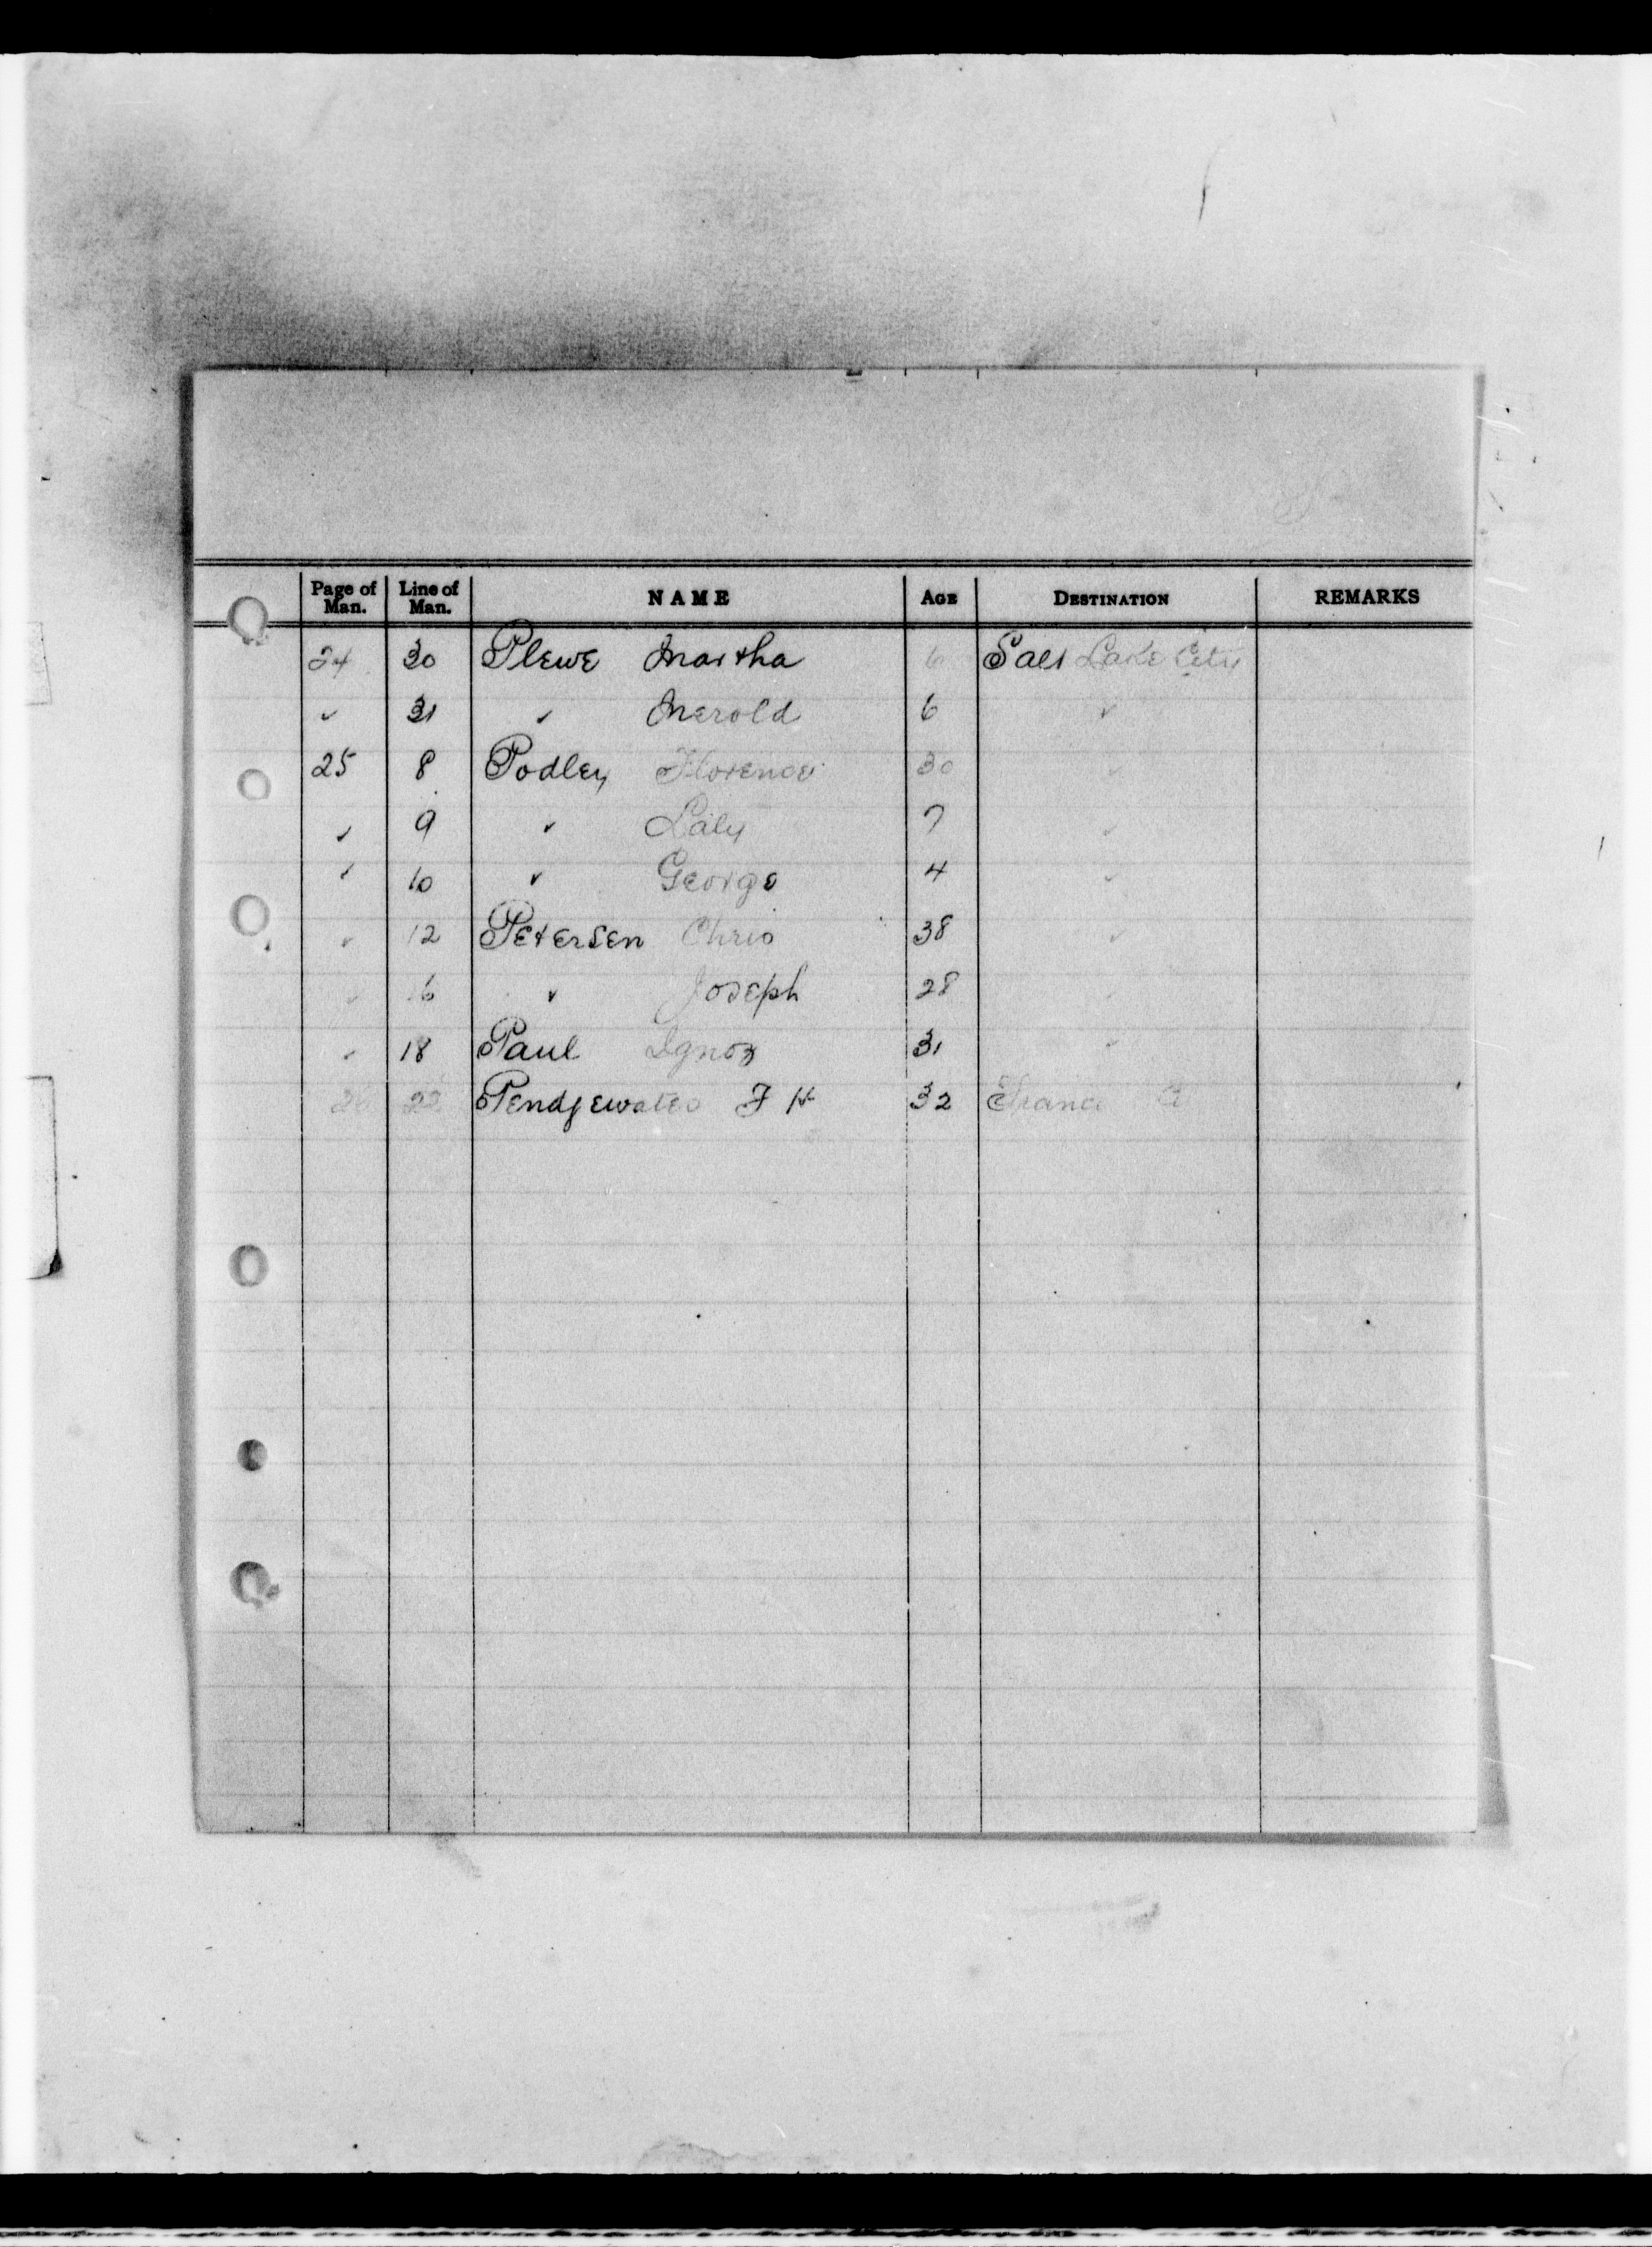 Page of Man. Line of Man. NAME AGE DESTINATION REMARKS
24 30 Plewe Martha 6 Salt Lake City
✓ 31 ✓ Merold 6 ✓
25 8 Podley Florence 30 ✓
✓ 9 ✓ Lily 7 ✓
✓ 10 ✓ George 4 ✓
✓ 12 Petersen Chris 38 ✓
✓ 16 ✓ Joseph 28 ✓
✓ 18 Paul Ignoz 31 ✓
26 22 F H 32